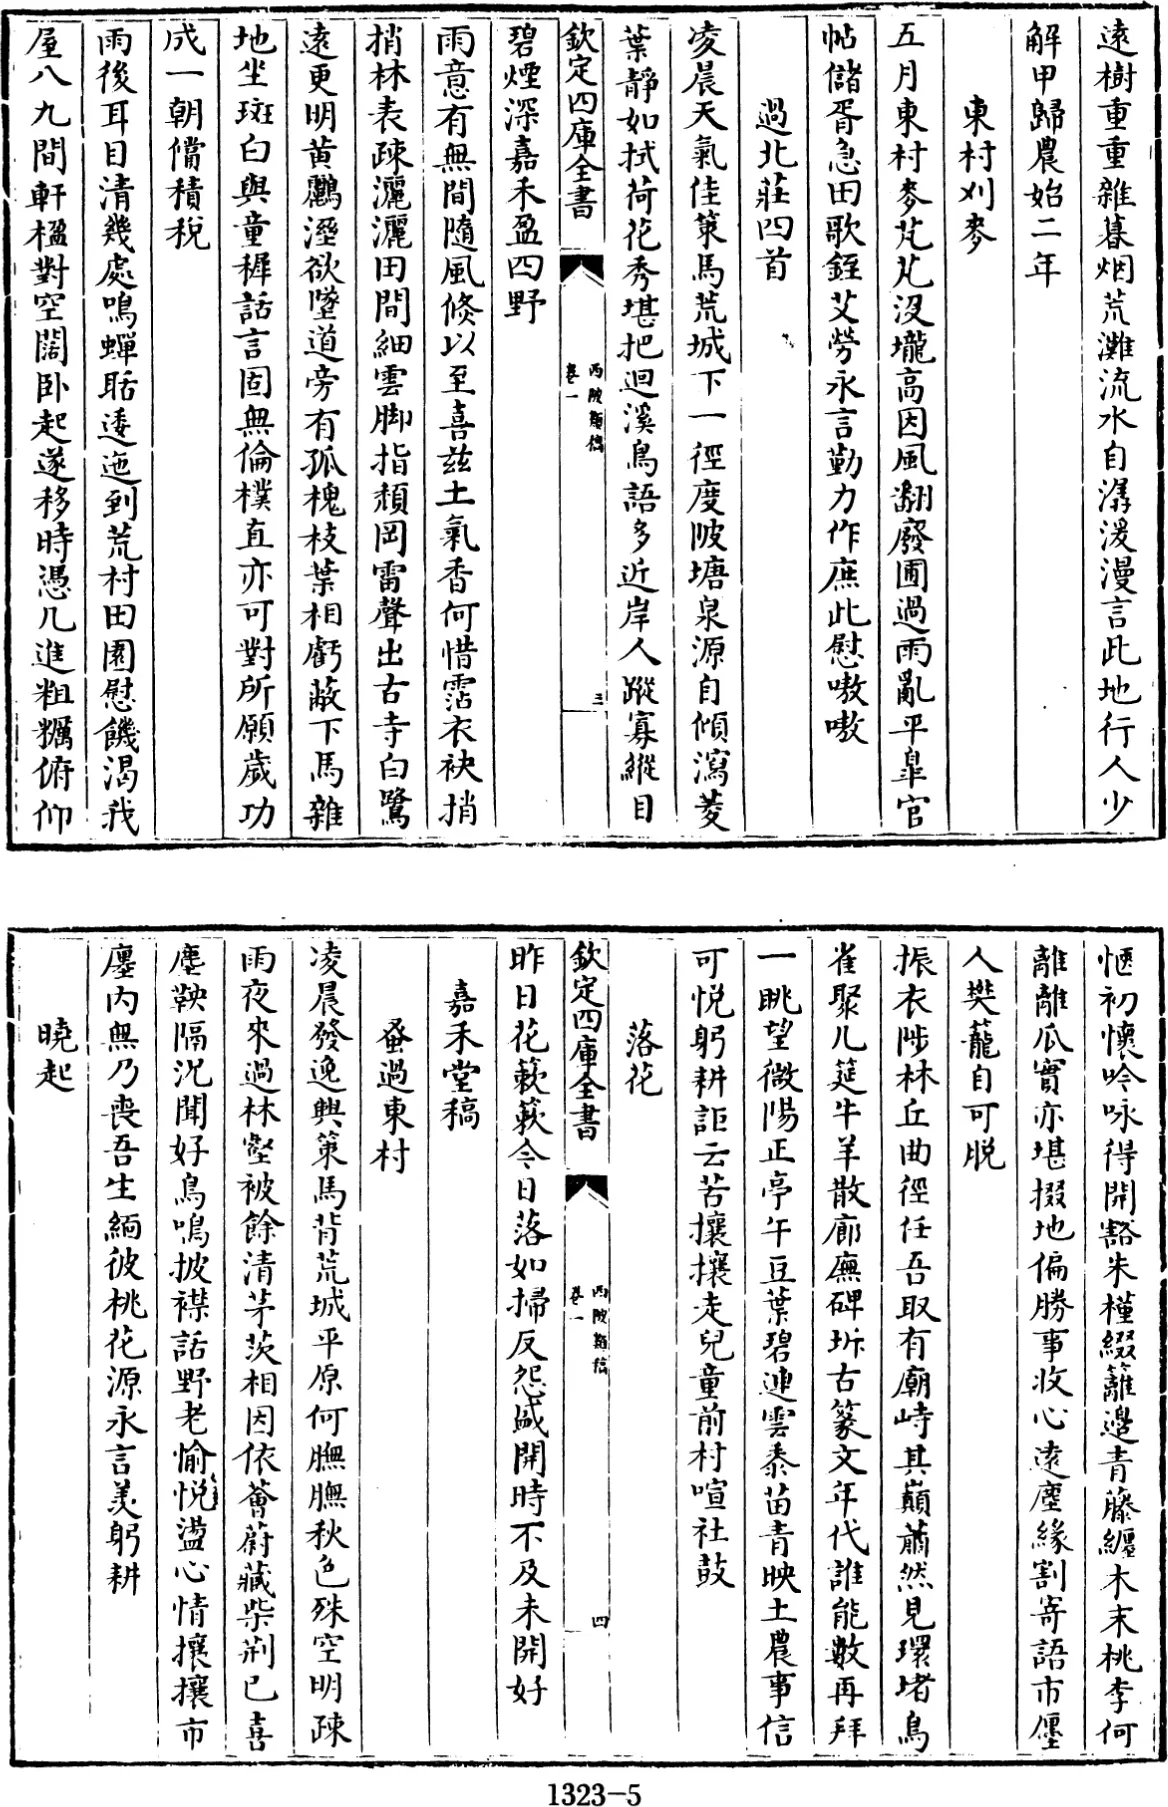 遠樹重重雜暮烟荒灘流水自潺湲漫言此地行人少
解甲歸農始二年
東村刈麥
五月東村麥芃芃沒壠高因風翻廢圃過雨亂平臯官
帖儲胥急田歌銍艾勞永言勤力作庶此慰嗷嗷
過北莊四首
凌晨天氣佳策馬荒城下一徑度陂塘泉源自傾瀉菱
葉靜如拭荷花秀堪把迴溪鳥語多近岸人蹤寡縱目
欽定四庫全書
西陂類稿
卷一
三
碧煙深嘉禾盈四野
雨意有無間隨風倐以至喜兹土氣香何惜霑衣袂捎
捎林表疎灑灑田間細雲脚指頹岡雷聲出古寺白鷺
遠更明黄鸝溼欲墜道旁有孤槐枝葉相虧蔽下馬雜
地坐斑白與童穉話言固無倫樸直亦可對所願歲功
成一朝償積稅
雨後耳目清幾處鳴蟬聒逶迤到荒村田園慰饑渴我
屋八九間軒楹對空闊卧起遂移時憑几進粗糲俯仰
愜初懷吟咏得開豁朱槿綴籬邊青藤纒木末桃李何
離離瓜實亦堪掇地偏勝事收心遠塵緣割寄語市㕓
人樊籠自可脱
振衣陟林丘曲徑任吾取有廟峙其巔蕭然見環堵鳥
雀聚几筵牛羊散廊廡碑坼古篆文年代誰能數再拜
一眺望微陽正亭午豆葉碧連雲黍苗青映土農事信
可悦躬耕詎云苦攘攘走兒童前村喧社鼓
落花
欽定四庫全書
西陂類稿
卷一
四
昨日花蔌蔌今日落如掃反怨盛開時不及未開好
嘉禾堂稿
蚤過東村
凌晨發逸興策馬背荒城平原何膴膴秋色殊空明疎
雨夜來過林壑被餘清茅茨相因依薈蔚藏柴荆已喜
塵鞅隔况聞好鳥鳴披襟話野老愉悦溢心情攘攘市
㕓内無乃喪吾生緬彼桃花源永言羙躬耕
曉起
1323-5